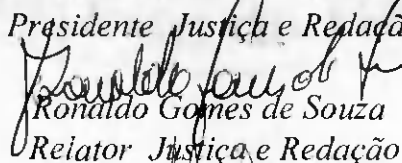 Presidente Justiça e Redaçã
Ronaldo Gomes de Souza
Relator Justiça e Redação